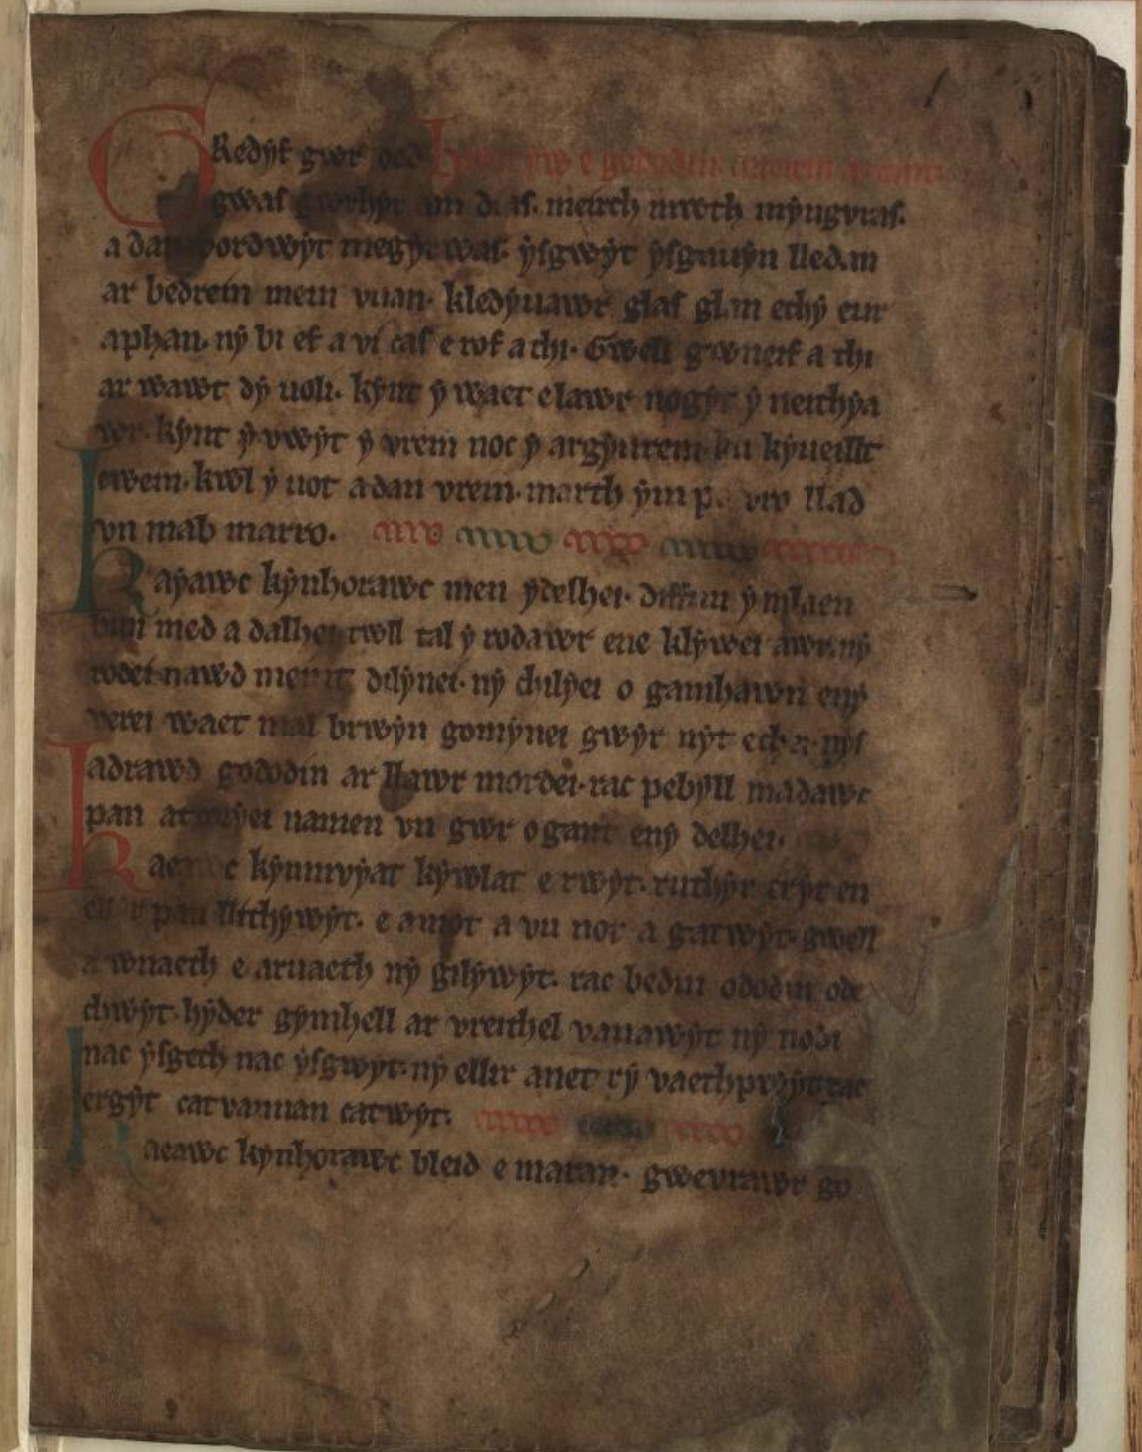 GRedyf gwr oed hwn yw e gododin. aneirin ae cant.
gwas gwrhyt am dias. meirch mwth myngvras.
a dan vordwyt megyr was. ysgwyt ysgauyn lledan
ar bedrein mein vuan. kledyuawr glas glan ethy eur
aphan. ny bi ef a vi cas e rof a thi. Gwell gwneif a thi
ar wawt dy uoli. kynt y waet elawr nogyt y neithya
wr. kynt y vwyt y vrein noc y argyurein. ku kyueillt
ewein. kwl y uot a dan vrein. marth ym pa vro llad
vn mab marro.
Kayawc kynhorawc men ydelhei. diffun ymlaen
bun med a dalhei. twll tal y rodawr ene klywei awr. ny
rodei nawd meint dilynei. ny chilyei o gamhawn eny
verei waet mal brwyn gomynei gwyr nyt echei. nys
adrawd gododin ar llawr mordei. rac pebyll madawc
pan atcoryei namen vn gwr o gant eny delhei.
Kaeawc kynnivyat kywlat e rwyt. ruthyr eryr en
ellyr pan llithywyt. e amot a vu not a gatwyt. gwell
a wnaeth e aruaeth ny gilywyt. rac bedin ododin ode
chwyt. hyder gymhell ar vreithel vanawyt. ny nodi
nac ysgeth nac ysgwyt. ny ellir anet ry vaethpwyt. rac
ergyt catvannan catwyt.
Kaeawc kynhorawc bleid e maran. gwevrawr go